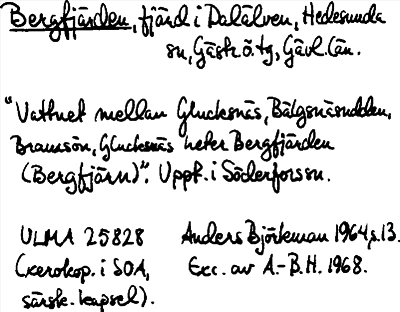 Bergfjärden, fjärd i Dalälven, Hedesunda
sn, Gästr. ö. tg, Gävl. län.
"Vattnet mellan Glucksnäs, Bälgsnäsudden,
Bramsön, Glucksnäs heter Bergfjärden
(Bergfjärn)". Uppt. i Söderforssn.
ULMA 25828
(xerokop. i SOA,
särsk. kapsel).
Anders Björkman 1964, s. 13.
Exc. av A.-B.H. 1968.